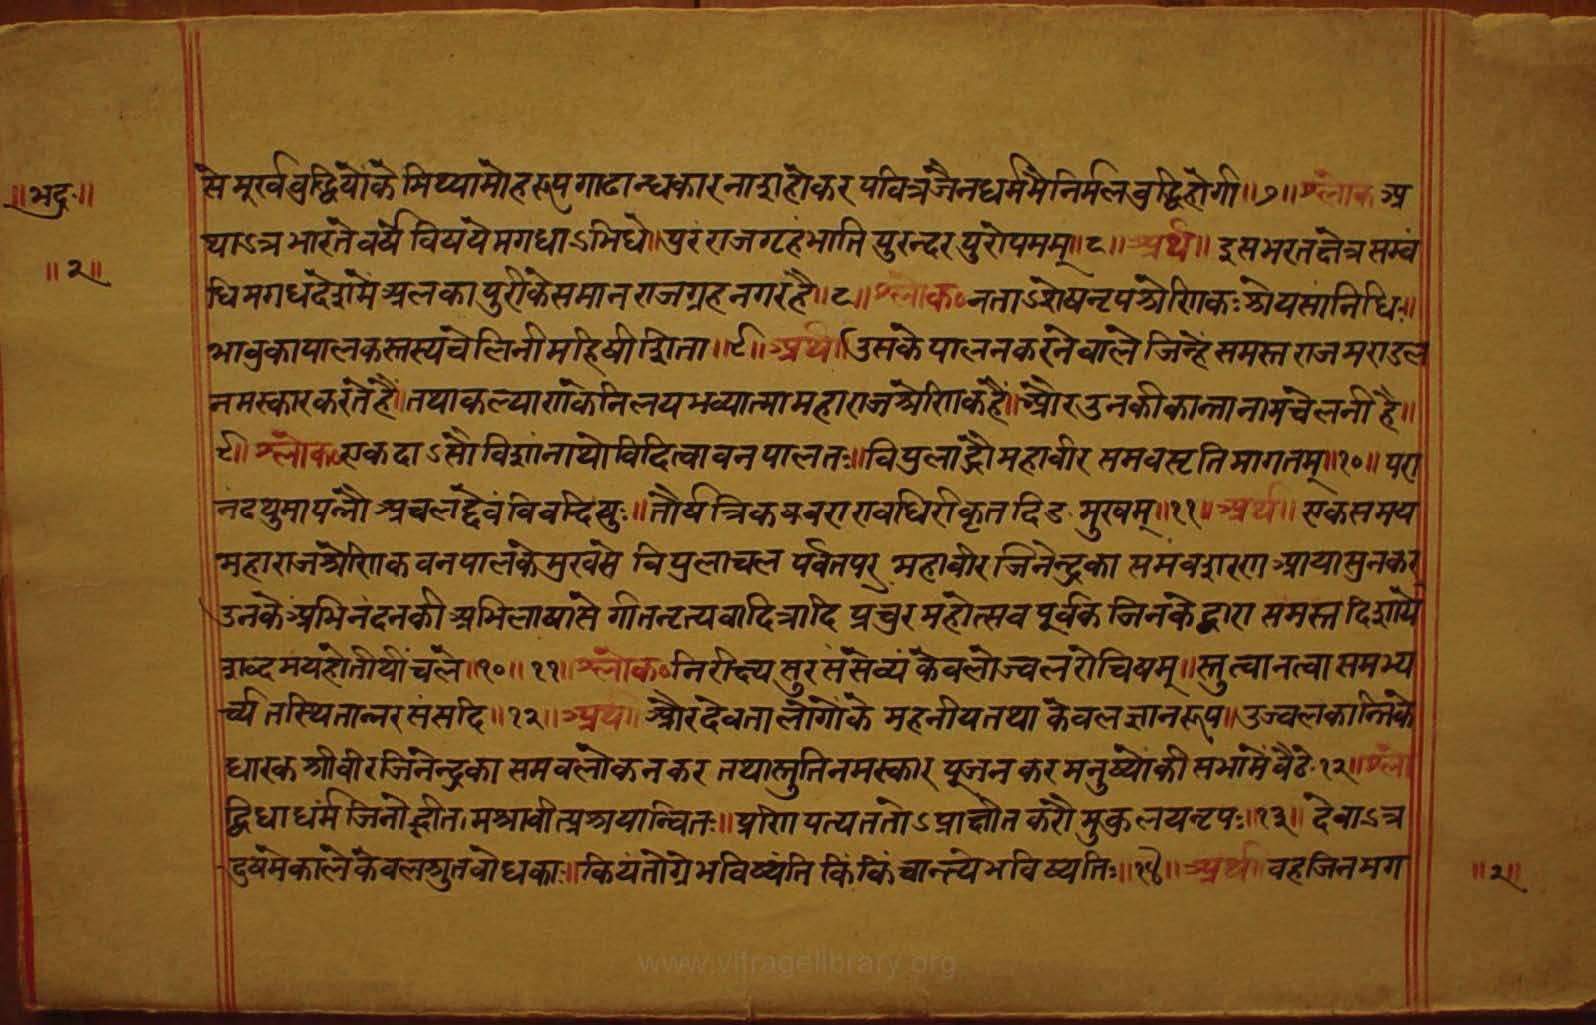 ॥भद्र॰॥
॥२॥
से मूर्ख बुद्धियोंके मिथ्यामोहरूप गाढान्धकार नाशहोकर पवित्र जैनधर्ममै निर्मल बुद्धिहोगी॥७॥ श्लोक अ
थाऽत्र भारते वर्षे विषये मगधाऽभिधे॥पुरं राजगृहं भाति पुरन्दर पुरोपमम्॥८॥अर्थ॥ इस भरतक्षेत्र सम्बं
धि मगधदेशमें अलका पुरीके समान राजग्रह नगर है॥८॥श्लोक॰ नताऽशेषनृप श्रेणिकः श्रेयसां निधिः॥
भावुका पालकस्तस्य चेलिनी महिषीशिता॥९॥अर्थ॥उसके पालन करनेवाले जिन्हें समस्त राज मराडल
नमस्कार करते हैं॥तथा कल्याणके निलय भव्यात्मा महाराज श्रेणिक हैं॥और उनकी कान्ता नाम चेलनी है॥
९॥श्लोक॰ एकदाऽसौ विशांनाथो विदित्वा वन पालतः॥विपुलाद्रौ महावीर समवसृति मागतम्॥१०॥परा
नंदथुमापन्नौ अचलद्देवं विवन्दिषुः॥तौर्यत्रिक बरारावधिरीकृत दिङ मुखम्॥११॥अर्थ॥ एक समय
महाराज श्रेणिक वनपालके मुखसे विपुलाचल पर्वतपर महावीर जिनेन्द्रका समंवशरण आया सुनकर
उनके अभिनंदनकी अभिलाषासे गीतनृत्यवादित्रादि प्रचुर महोत्सव पूर्वक जिनके द्वारा समस्त दिशायें
शब्दमय होतीथीं चले॥१०॥११॥श्लोक॰ निरीक्ष्य सुर संसेव्यं केवलोज्वल रोचिषम्॥स्तुत्वा नत्वा समभ्य
र्च्य तस्थितान्नर संसदि॥१२॥अर्थ॥ और देवता लोगोंके महनीय तथा केवल ज्ञानरूप॥उज्वल कान्तिके
धारक श्रीवीर जिनेन्द्रका समवलोकन कर तथा स्तुति नमस्कार पूजन कर मनुष्योंकी सभामें बैठे॰१२॥श्लो
द्विधा धर्म जिनोद्गीत मश्रावीत्प्रश्रयान्वितः॥प्रणिपत्यततोऽप्राक्षीत करौ मुकुलयन्नृपः॥१३॥ देवाऽत्र
दुषमेकाले केवलश्रुत बोधकाः॥कियंतोग्रे भविष्यंति किं किं चान्त्ये भविष्यतिः॥१४॥अर्थ॥ वह जिन मग
॥२॥
www.vitragelibrary.org